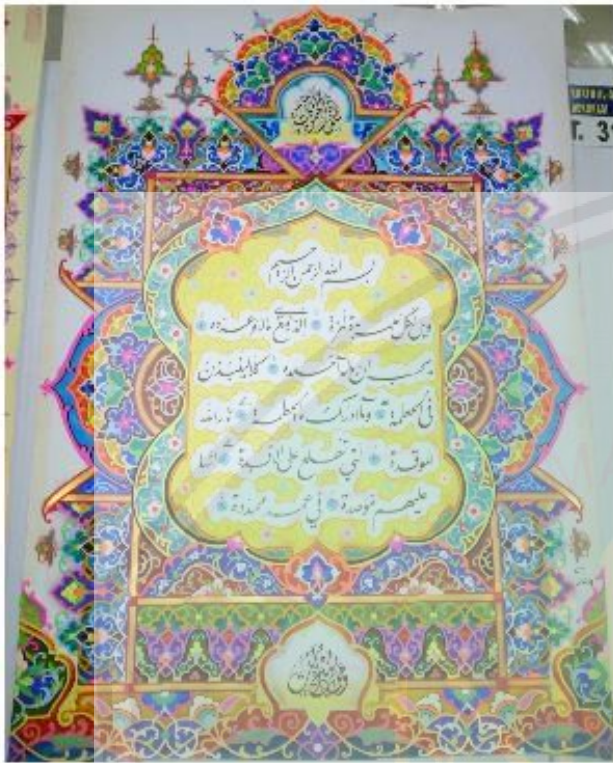 بسم الله الرحمن الرحيم
ويل لكل همزة لمزة الذي جمع مالا وعدده
يحسب ان ماله أخلده كلا لينبذن
في الحطمة وما ادرىك ما الحطمة نار الله
الموقدة التي تطلع على الافئدة انها
عليهم موصدة في عمد ممددة